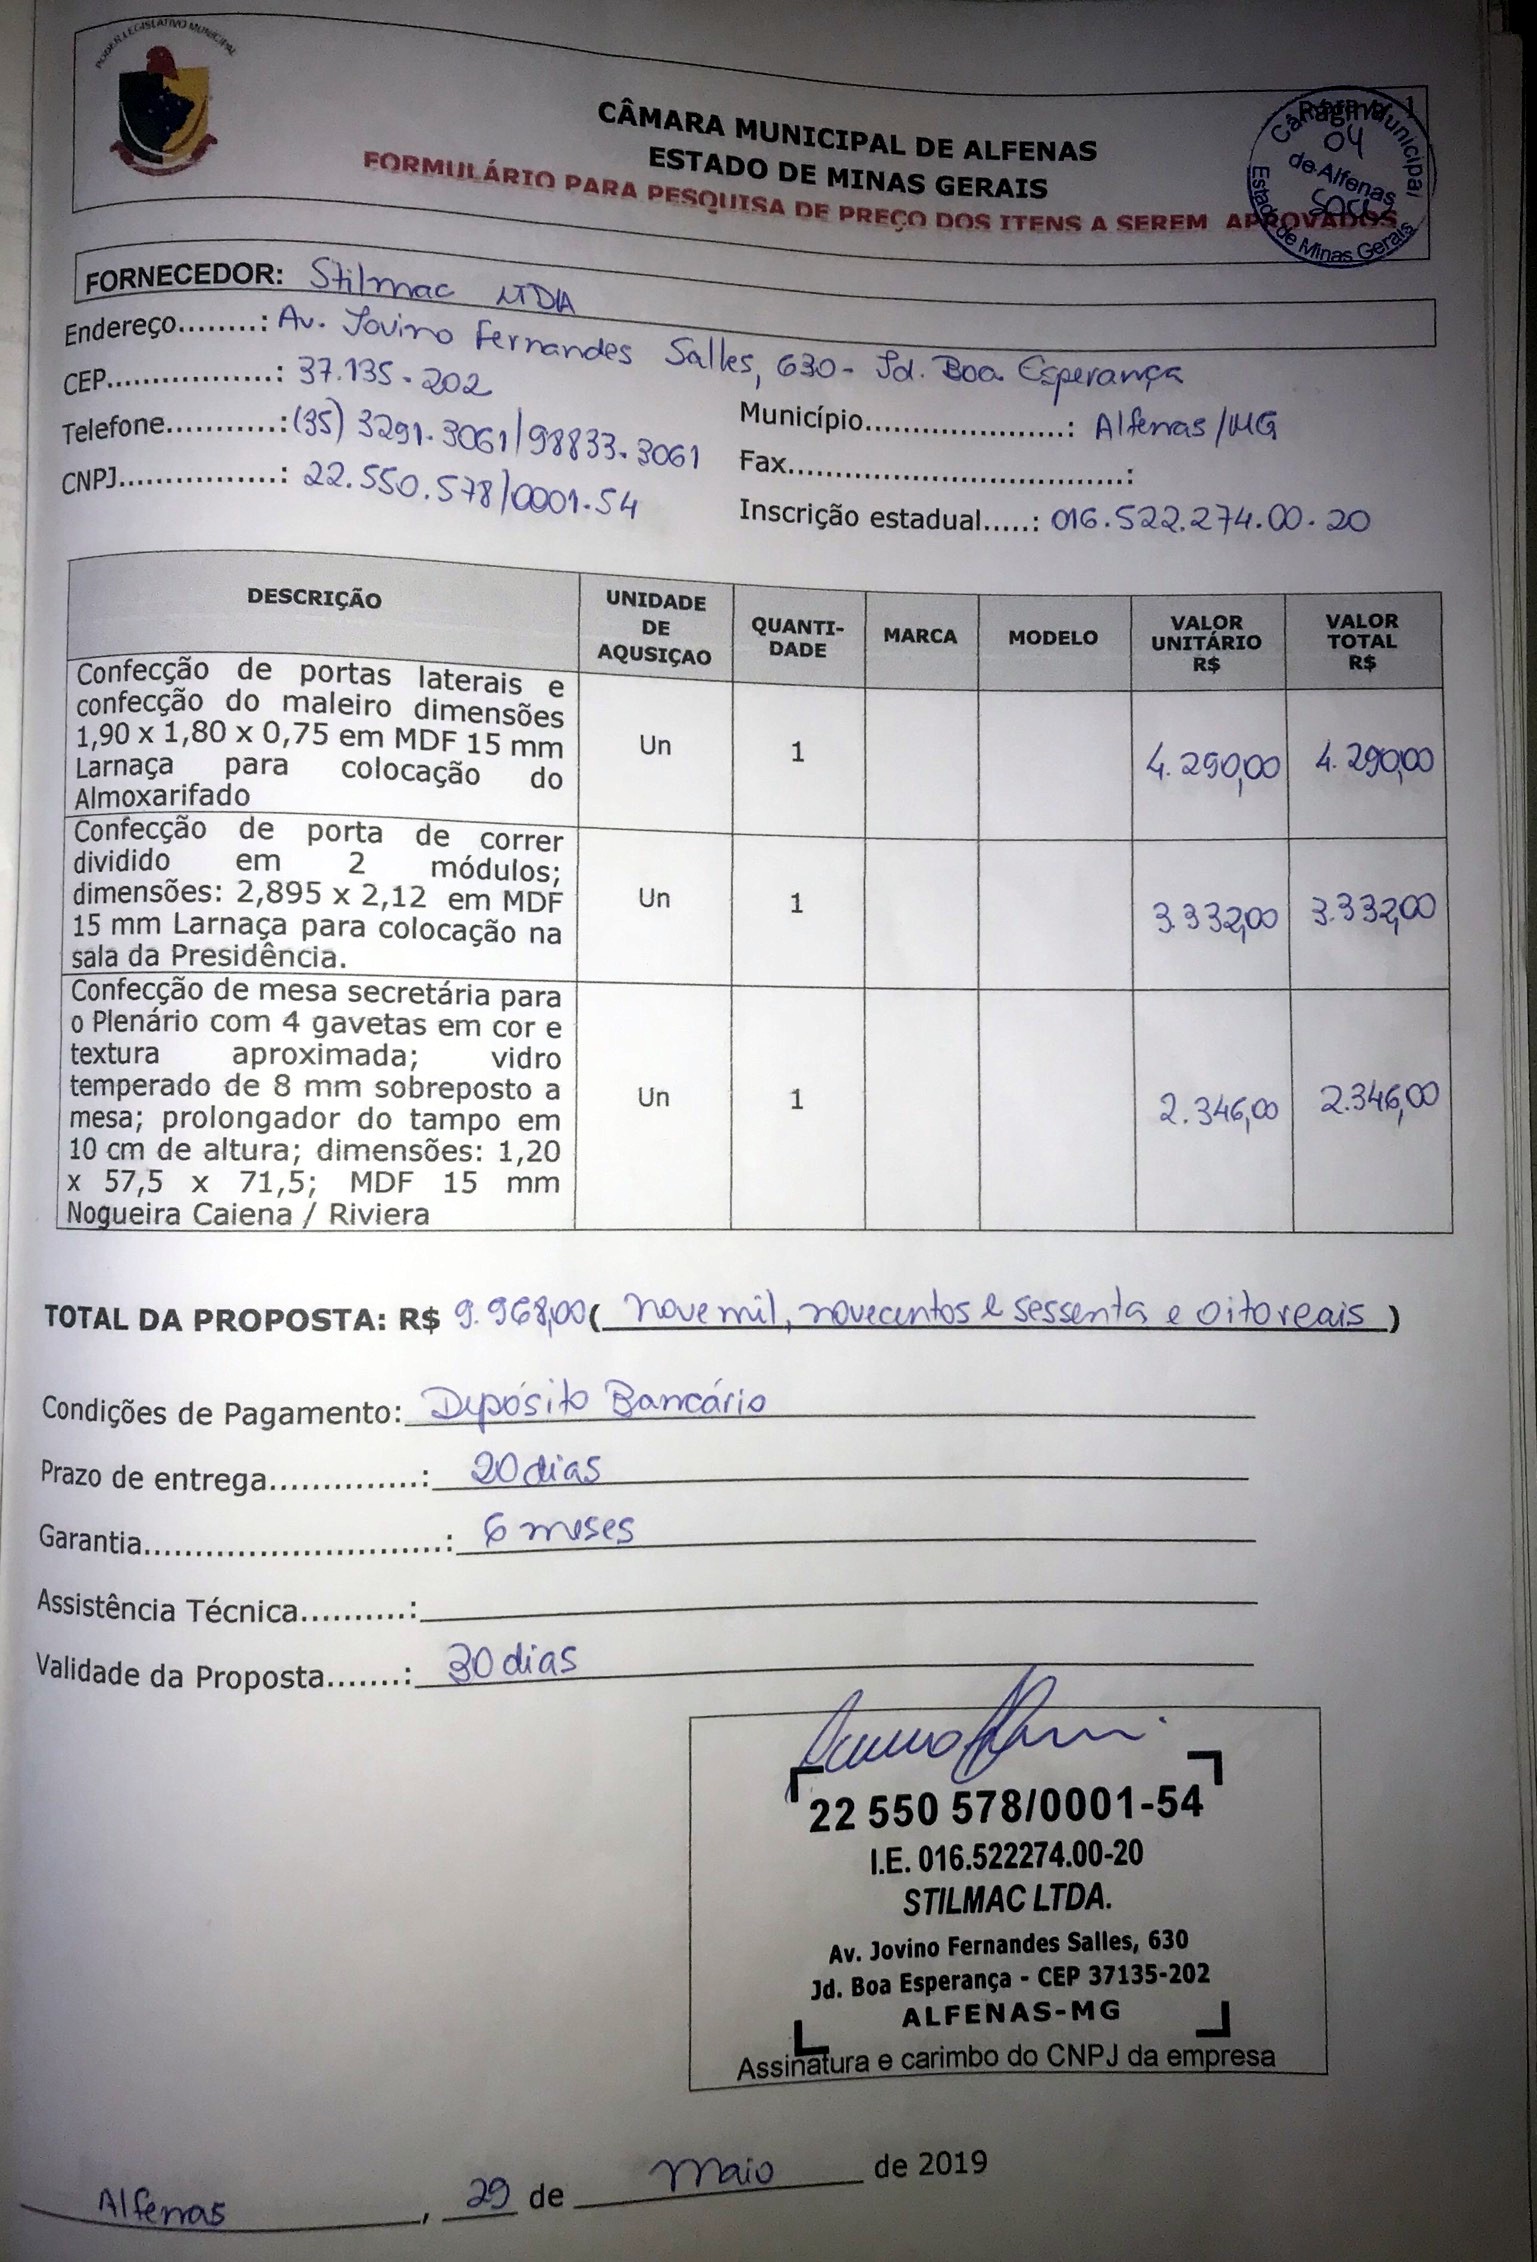 PODER LEGISLATIVO MUNICIPAL
CÂMARA MUNICIPAL DE ALFENAS
ESTADO DE MINAS GERAIS
FORMULÁRIO PARA PESQUISA DE PREÇO DOS ITENS A SEREM APROVADOS
Câmara Municipal
Página 1
04
de Alfenas
Estado de Minas Gerais
FORNECEDOR: Stilmac LTDA
Endereço........: Av. Jovino Fernandes Salles, 630 - Jd. Boa Esperança
CEP.................: 37.135-202
Município.....................: Alfenas/MG
Telefone...........: (35) 3291.3061/98833.3061
Fax...................................:
CNPJ................: 22.550.578/0001-54
Inscrição estadual.....: 016.522.274.00-20
DESCRIÇÃO
UNIDADE
DE
AQUSIÇAO
QUANTI-
DADE
MARCA
MODELO
VALOR
UNITÁRIO
R$
VALOR
TOTAL
R$
Confecção de portas laterais e
confecção do maleiro dimensões
1,90 x 1,80 x 0,75 em MDF 15 mm
Larnaça para colocação do
Almoxarifado
Un
1
4.290,00
4.290,00
Confecção de porta de correr
dividido em 2 módulos;
dimensões: 2,895 x 2,12 em MDF
15 mm Larnaça para colocação na
sala da Presidência.
Un
1
3.332,00
3.332,00
Confecção de mesa secretária para
o Plenário com 4 gavetas em cor e
textura aproximada; vidro
temperado de 8 mm sobreposto a
mesa; prolongador do tampo em
10 cm de altura; dimensões: 1,20
x 57,5 x 71,5; MDF 15 mm
Nogueira Caiena / Riviera
Un
1
2.346,00
2.346,00
TOTAL DA PROPOSTA: R$ 9.968,00 ( nove mil, novecentos e sessenta e oito reais )
Condições de Pagamento: Depósito Bancário
Prazo de entrega..............: 20 dias
Garantia............................: 6 meses
Assistência Técnica..........:
Validade da Proposta.......: 30 dias
22 550 578/0001-54
I.E. 016.522274.00-20
STILMAC LTDA.
Av. Jovino Fernandes Salles, 630
Jd. Boa Esperança - CEP 37135-202
ALFENAS-MG
Assinatura e carimbo do CNPJ da empresa
Alfenas, 29 de Maio de 2019